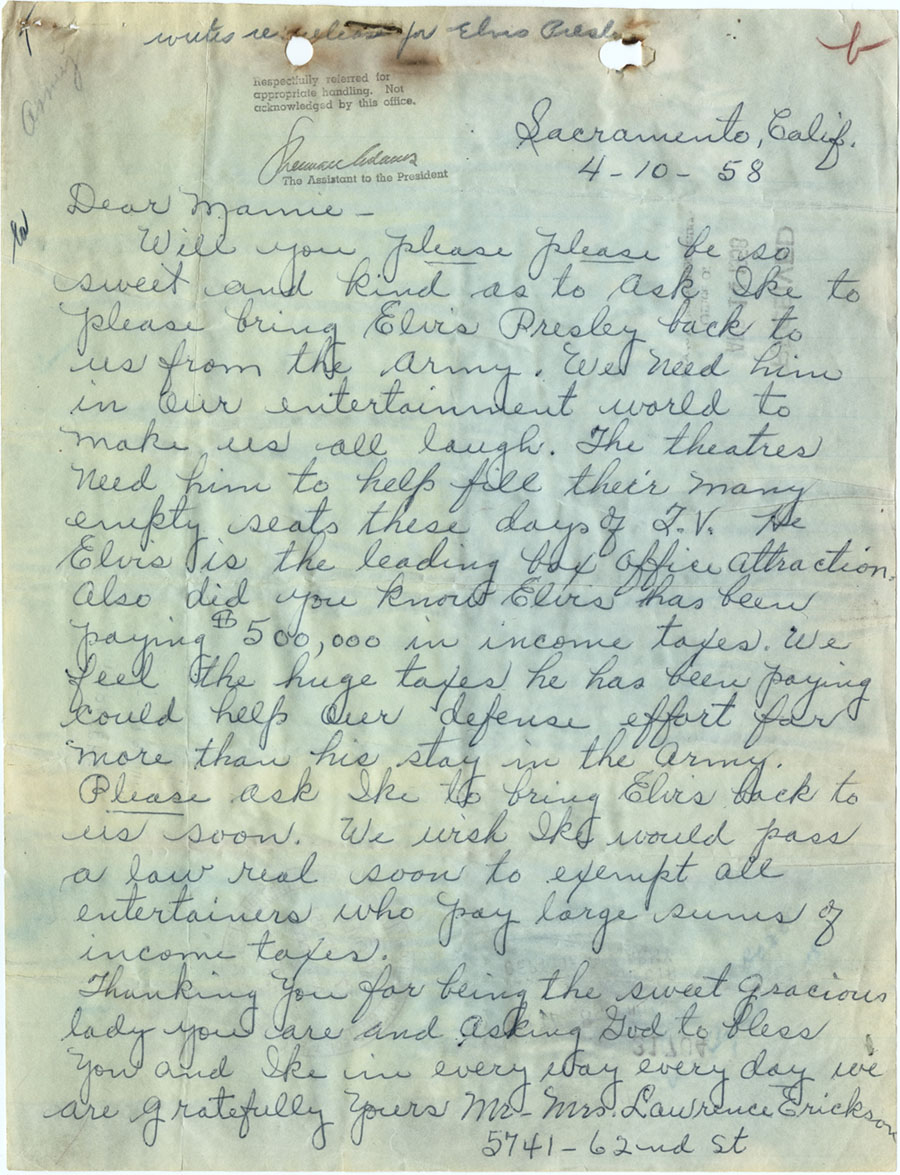 writes re release for Elvis Presley
Army
Respectfully referred for
appropriate handling. Not
acknowledged by this office.
Sherman Adams
The Assistant to the President
Sacramento, Calif.
4-10-58
Dear Mamie-
Will you please please be so
sweet and kind as to ask Ike to
please bring Elvis Presley back to
us from the Army. We need him
in our entertainment world to
make us all laugh. The theatres
need him to help fill their many
empty seats these days of T.V. He
Elvis is the leading box office attraction.
Also did you know Elvis has been
paying $500,000 in income taxes. We
feel the huge taxes he has been paying
could help our defense effort far
more than his stay in the Army.
Please ask Ike to bring Elvis back to
us soon. We wish Ike would pass
a law real soon to exempt all
entertainers who pay large sums of
income taxes.
Thanking you for being the sweet gracious
lady you are and asking God to bless
you and Ike in every way every day we
are gratefully yours Mr-Mrs. Lawrence Erickson
5741-62nd St